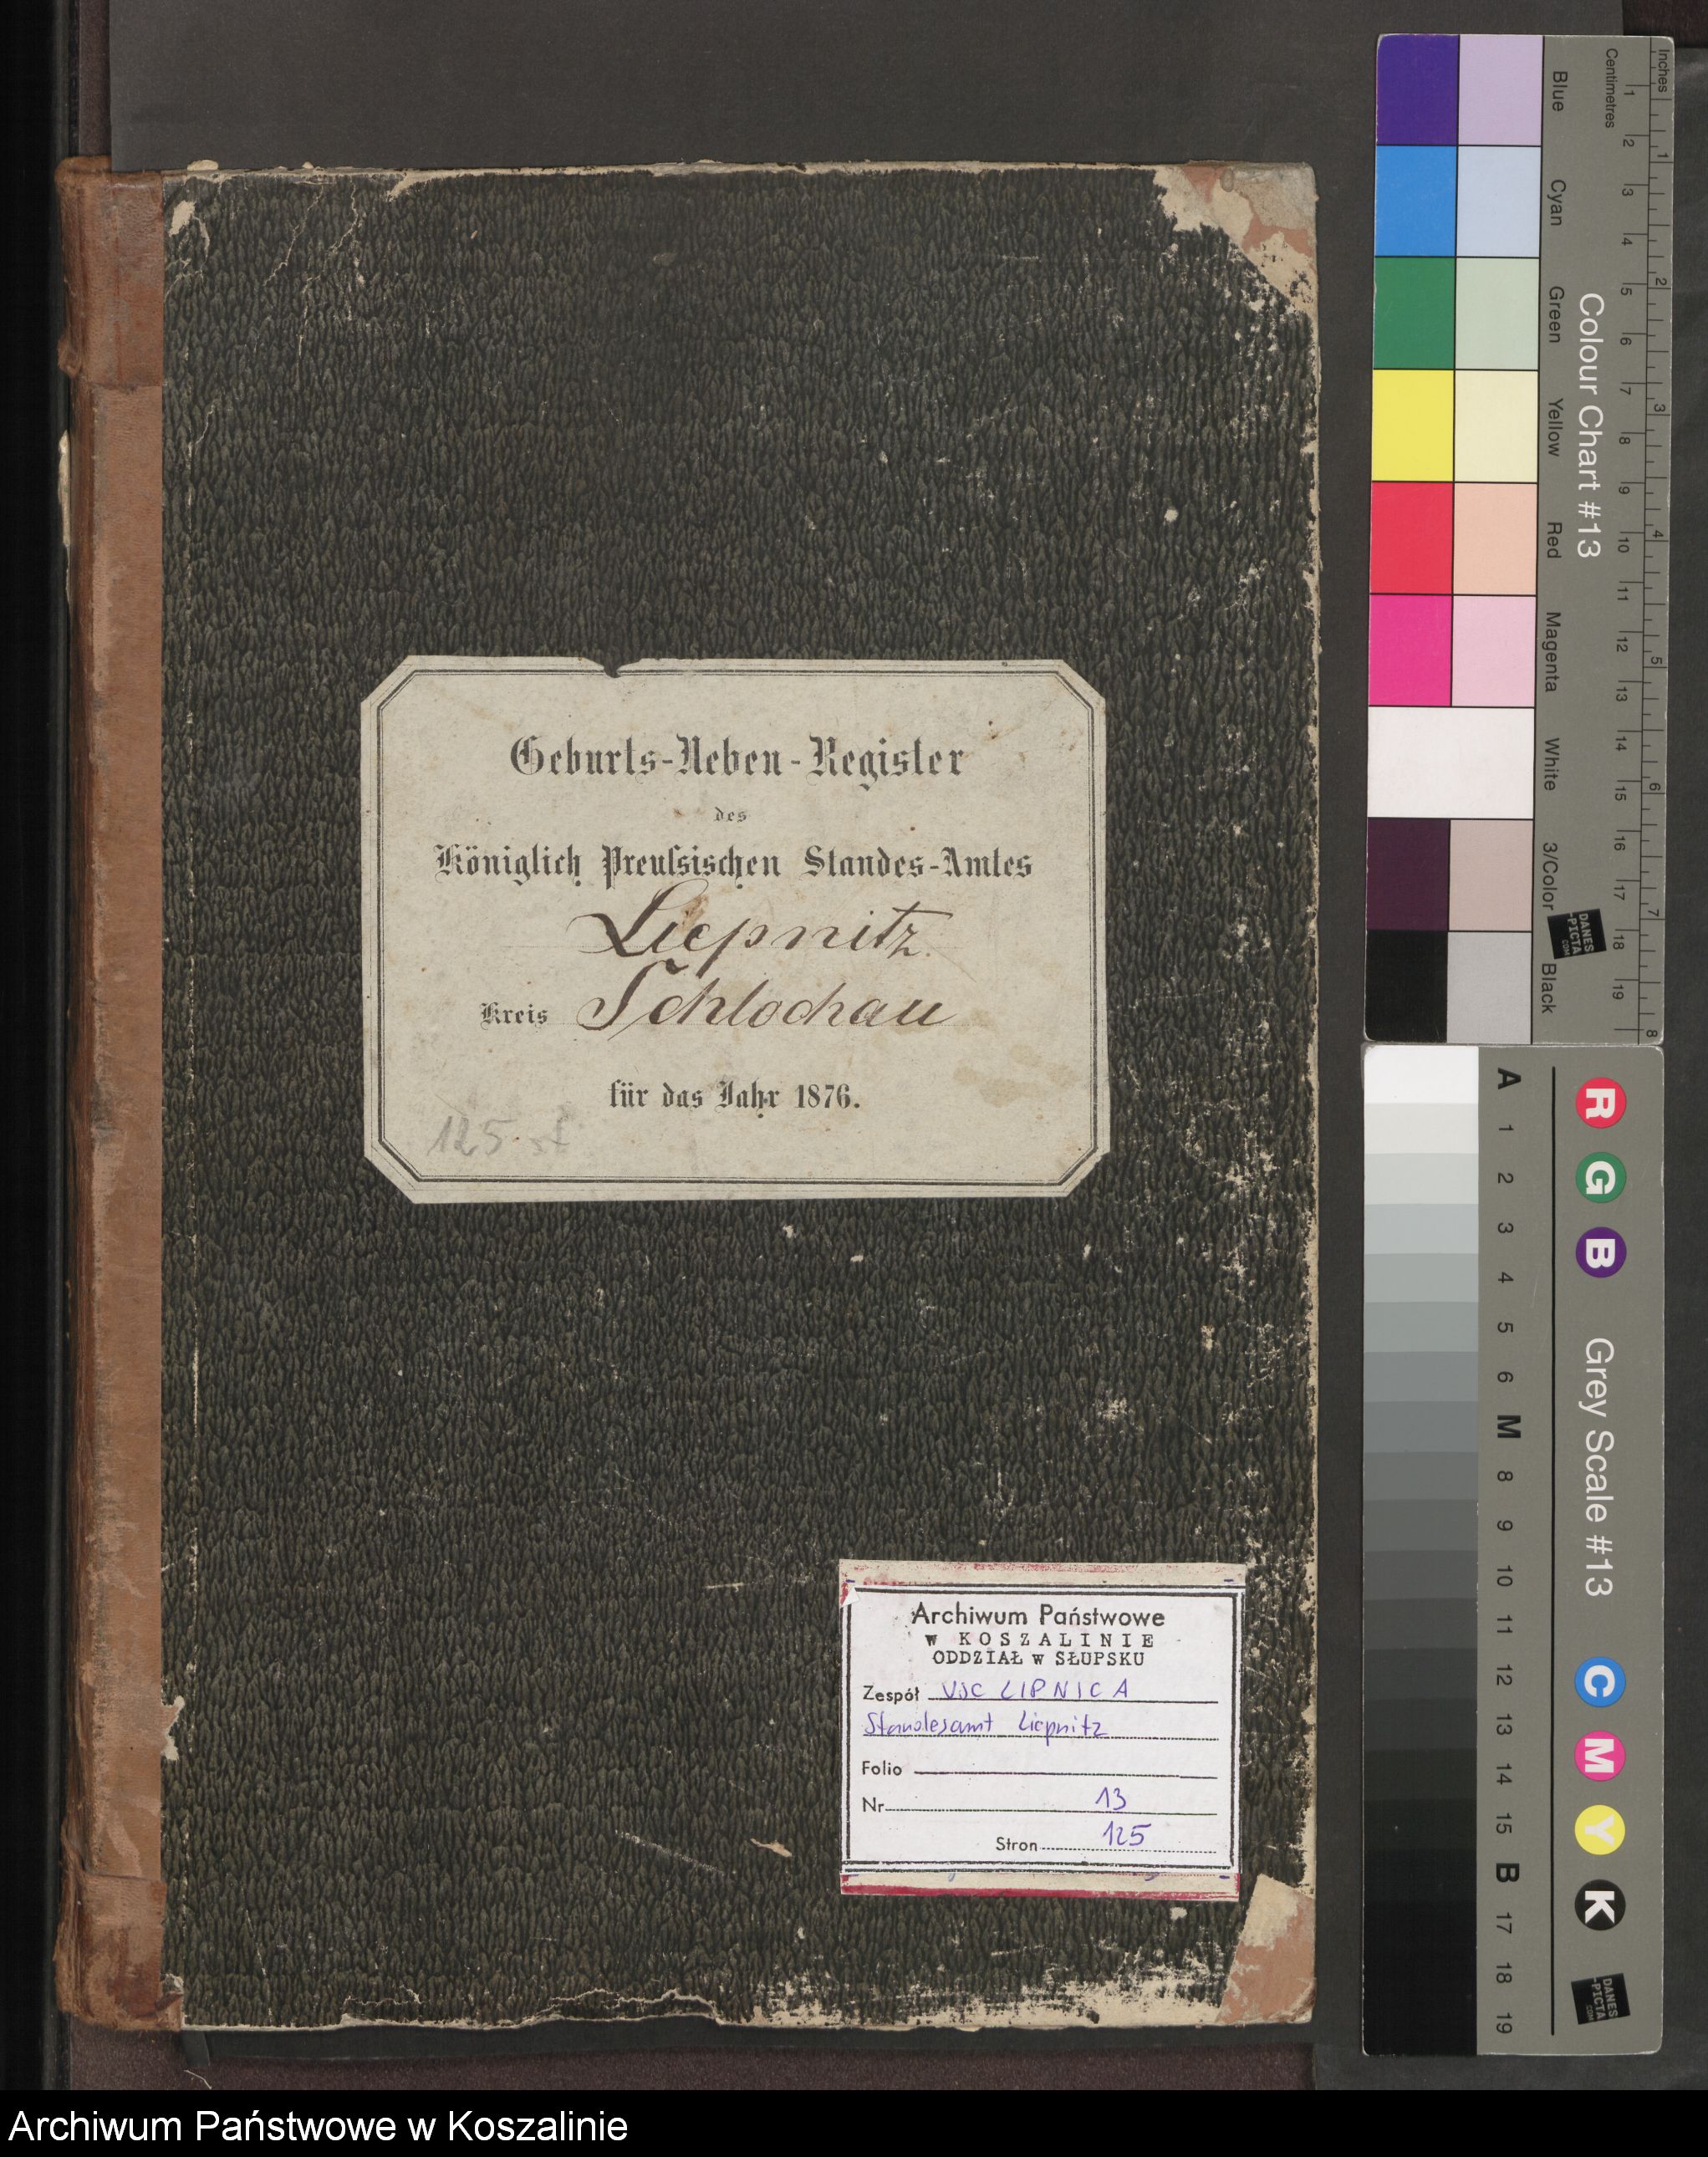 Geburts-Neben-Register
des
Königlich Preußsischen Standes-Amtes
Liepnitz.
Kreis Schlochau
für das Jahr 1876.
125
Archiwum Państwowe
w KOSZALINIE
ODDZIAŁ w SŁUPSKU
Zespół USC LIPNICA
Standesamt Liepnitz
Folio
Nr 13
Stron 125
Inches
Centimetres
1 2 3 4 5 6 7 8
1 2 3 4 5 6 7 8 9 10 11 12 13 14 15 16 17 18 19
Colour Chart #13
Blue Cyan Green Yellow Red Magenta White 3/Color Black
DANES
-PICTA
.COM
A 1 2 3 4 5 6 M 8 9 10 11 12 13 14 15 B 17 18 19
R G B Grey Scale #13 C M Y K
DANES
-PICTA
.COM
Archiwum Państwowe w Koszalinie